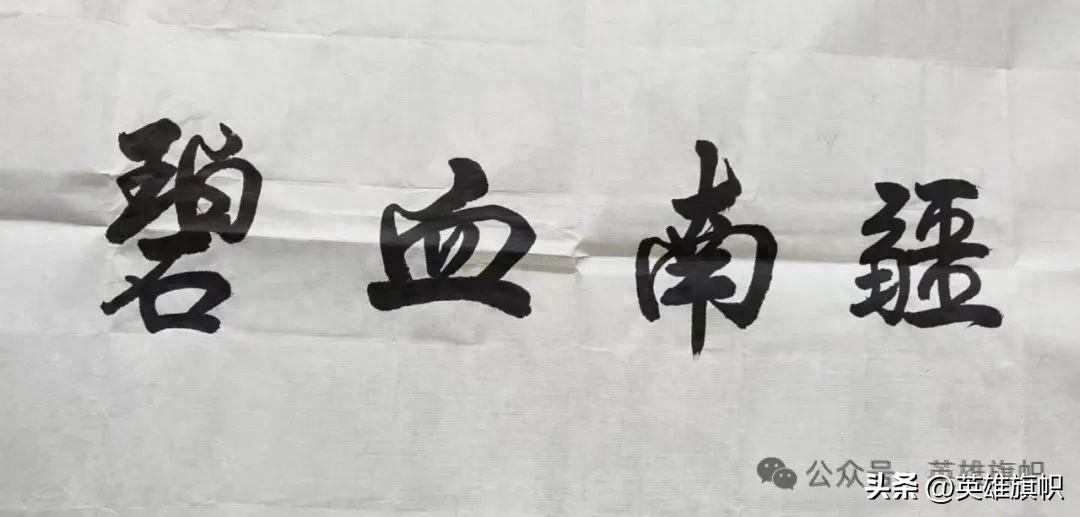 碧血南疆
公众号 英雄旗帜
头条 @英雄旗帜